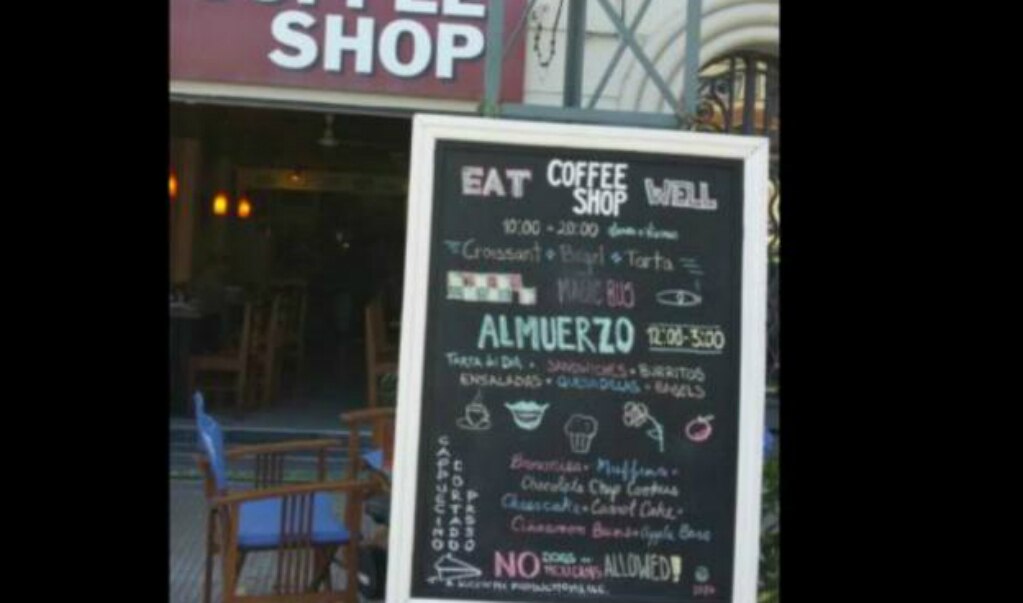 COFFEE
SHOP
EAT COFFEE SHOP WELL
10:00 - 20:00
Croissant + Bagel + Tarta
MAGIC BUS
ALMUERZO 12:00-3:00
TARTA del DIA + SANDWICHES + BURRITOS
ENSALADAS + QUESADILLAS + BAGELS
Brownies + Muffins +
Chocolate Chip Cookies
Cheesecake + Carrot Cake +
Cinnamon Buns + Apple Bars
CAPPUCCINO
CORTADO
NO DOGS or MEXICANS ALLOWED!